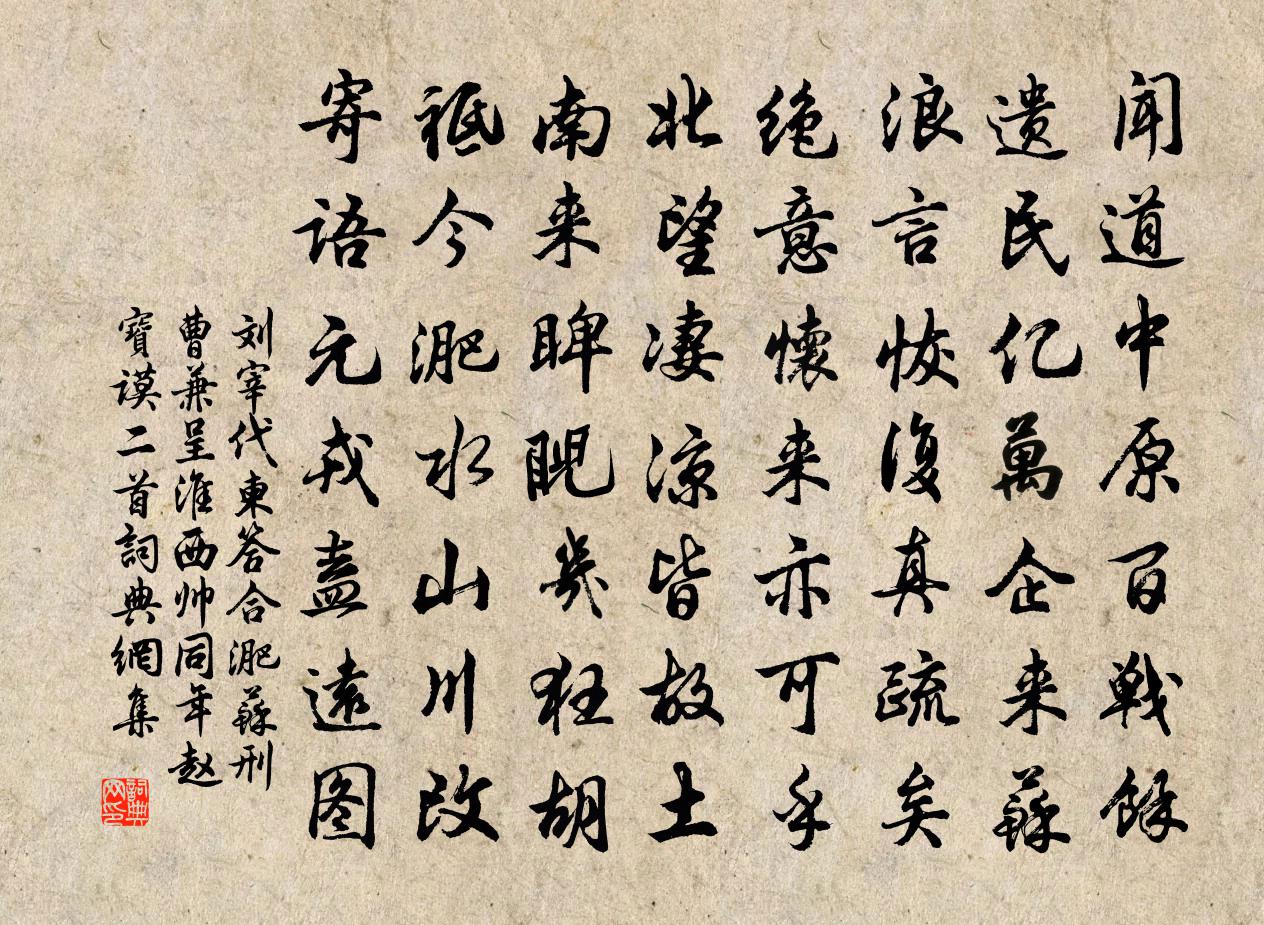 闻道中原百戦餘
遗民亿萬企来蘇
浪言恢復真疏矣
绝意懷来亦可乎
北望凄凉皆故土
南来睥睨幾狂胡
祗今淝水山川改
寄语元戎盍遠图
刘宰代柬答合淝蘇刑
曹兼呈淮西帅同年赵
寶谟二首詞典網集
詞典网印